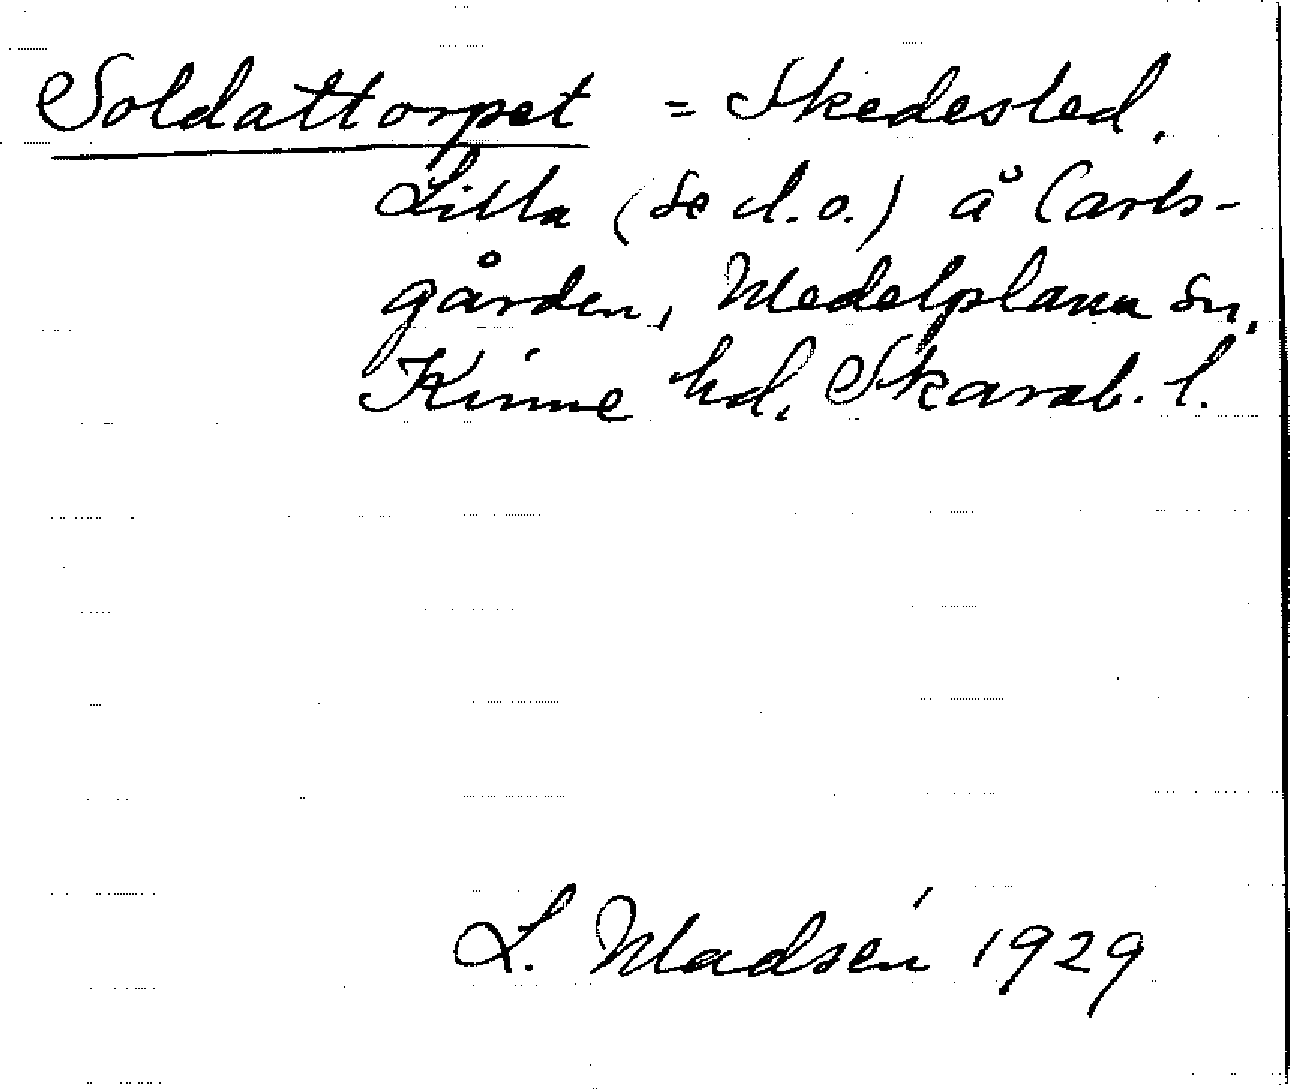 Soldattorpet = Skedested,
Lilla (se d.o.) å Carls-
gården, Medelplana sn,
Kinne hd, Skarab. l.
L. Madsén 1929